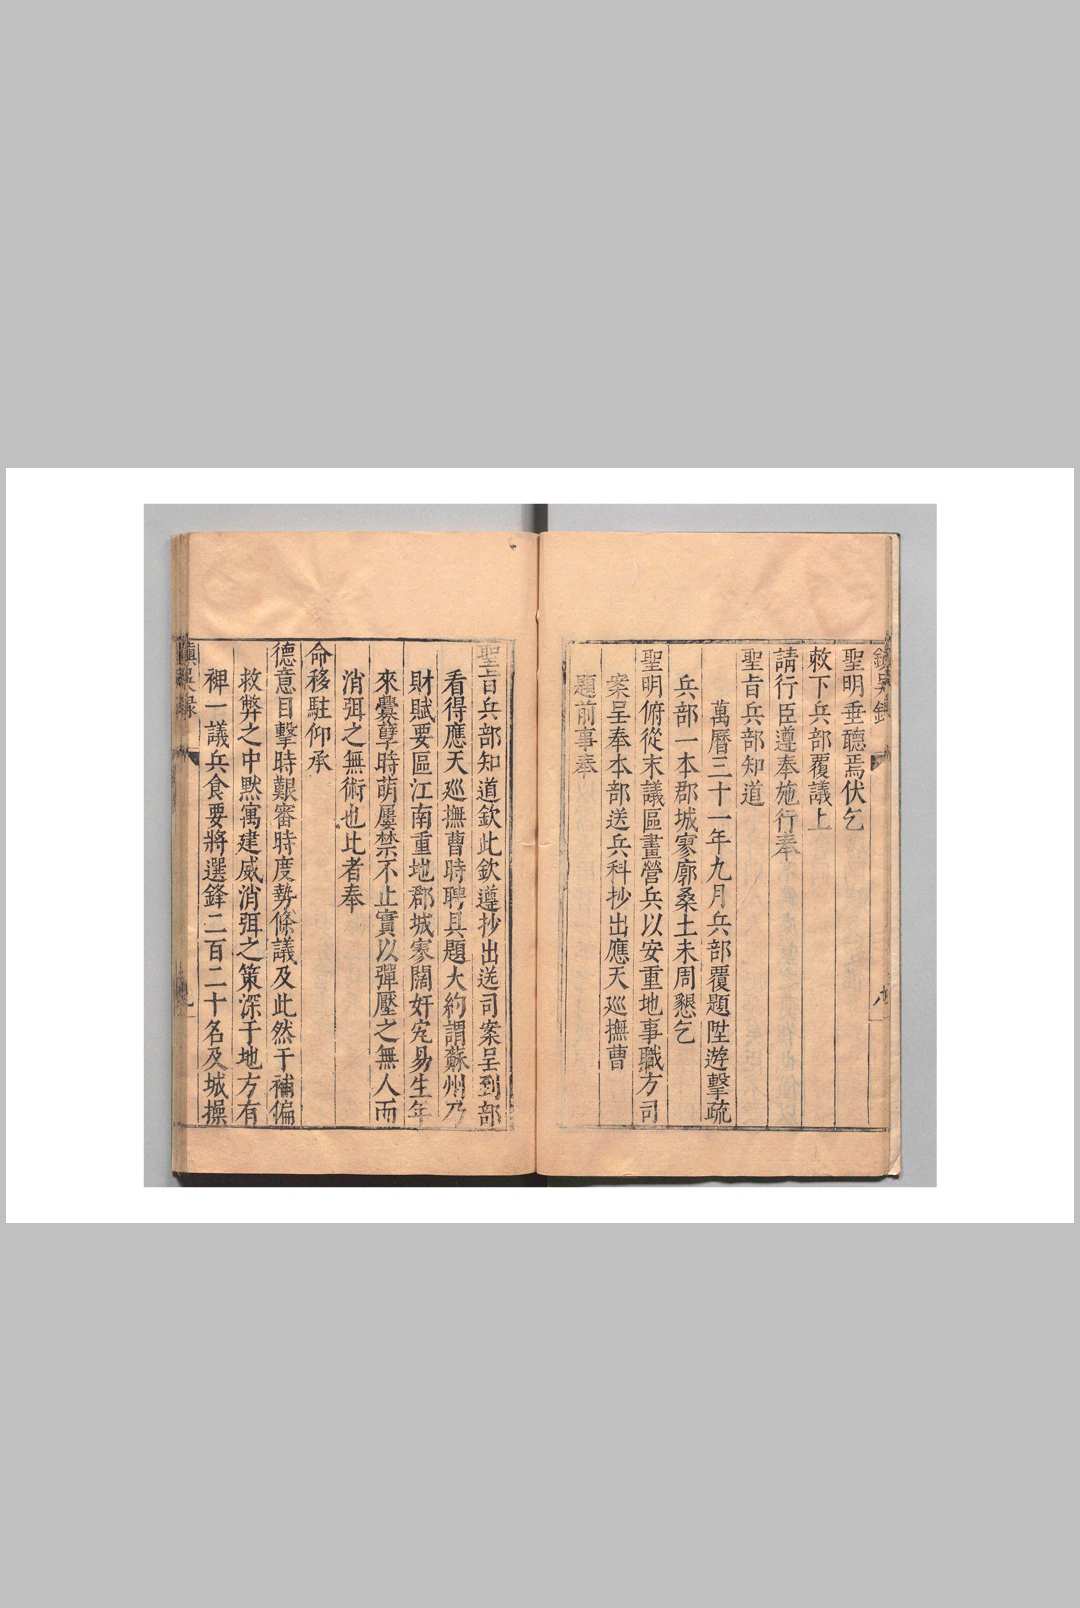 鎮吳錄
聖明垂聽焉伏乞
敕下兵部覆議上
請行臣遵奉施行奉
聖旨兵部知道
萬曆三十一年九月兵部覆題陞遊擊疏
兵部一本郡城寥廓桑土未周懇乞
聖明俯從末議區畫營兵以安重地事職方司
案呈奉本部送兵科抄出應天廵撫曹
題前事奉
聖旨兵部知道欽此欽遵抄出送司案呈到部
看得應天廵撫曹時聘具題大約謂蘇州乃
財賦要區江南重地郡城寥闊奸宄易生年
來釁孽時萌屢禁不止實以彈壓之無人而
消弭之無術也比者奉
命移駐仰承
德意目擊時艱審時度勢條議及此然于補偏
救弊之中默寓建威消弭之策深于地方有
裨一議兵食要將選鋒二百二十名及城操
鎮吳錄
九